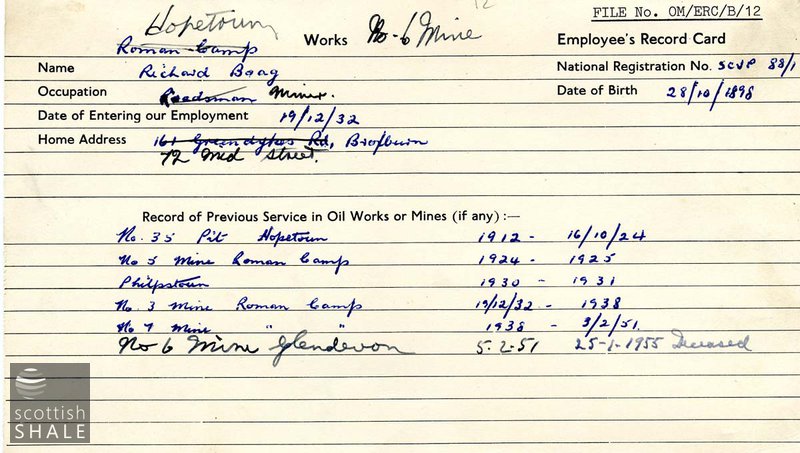 12
FILE No. OM/ERC/B/12
Hopetoun
Roman Camp Works No-6 Mine Employee's Record Card
Name Richard Boag National Registration No. SCVP 88/1
Occupation Roadsman Miner. Date of Birth 28/10/1898
Date of Entering our Employment 19/12/32
Home Address 161 Greendykes Rd, Broxburn
72 Mid Street.
Record of Previous Service in Oil Works or Mines (if any) :—
No. 35 Pit Hopetoun 1912 - 16/10/24
No 5 Mine Roman Camp 1924 - 1925
Philpstoun 1930 - 1931
No 3 Mine Roman Camp 19/12/32 - 1938
No 7 Mine " " 1938 - 3/2/51.
No 6 Mine Glendevon 5.2.51 25-1-1955 Deceased
scottish
SHALE